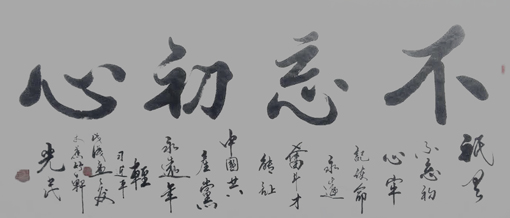 不忘初心
祇有
不忘初
心牢
記使命
永遠
奮斗才
能讓
中國共
產黨
永遠年
輕
習近平
光民